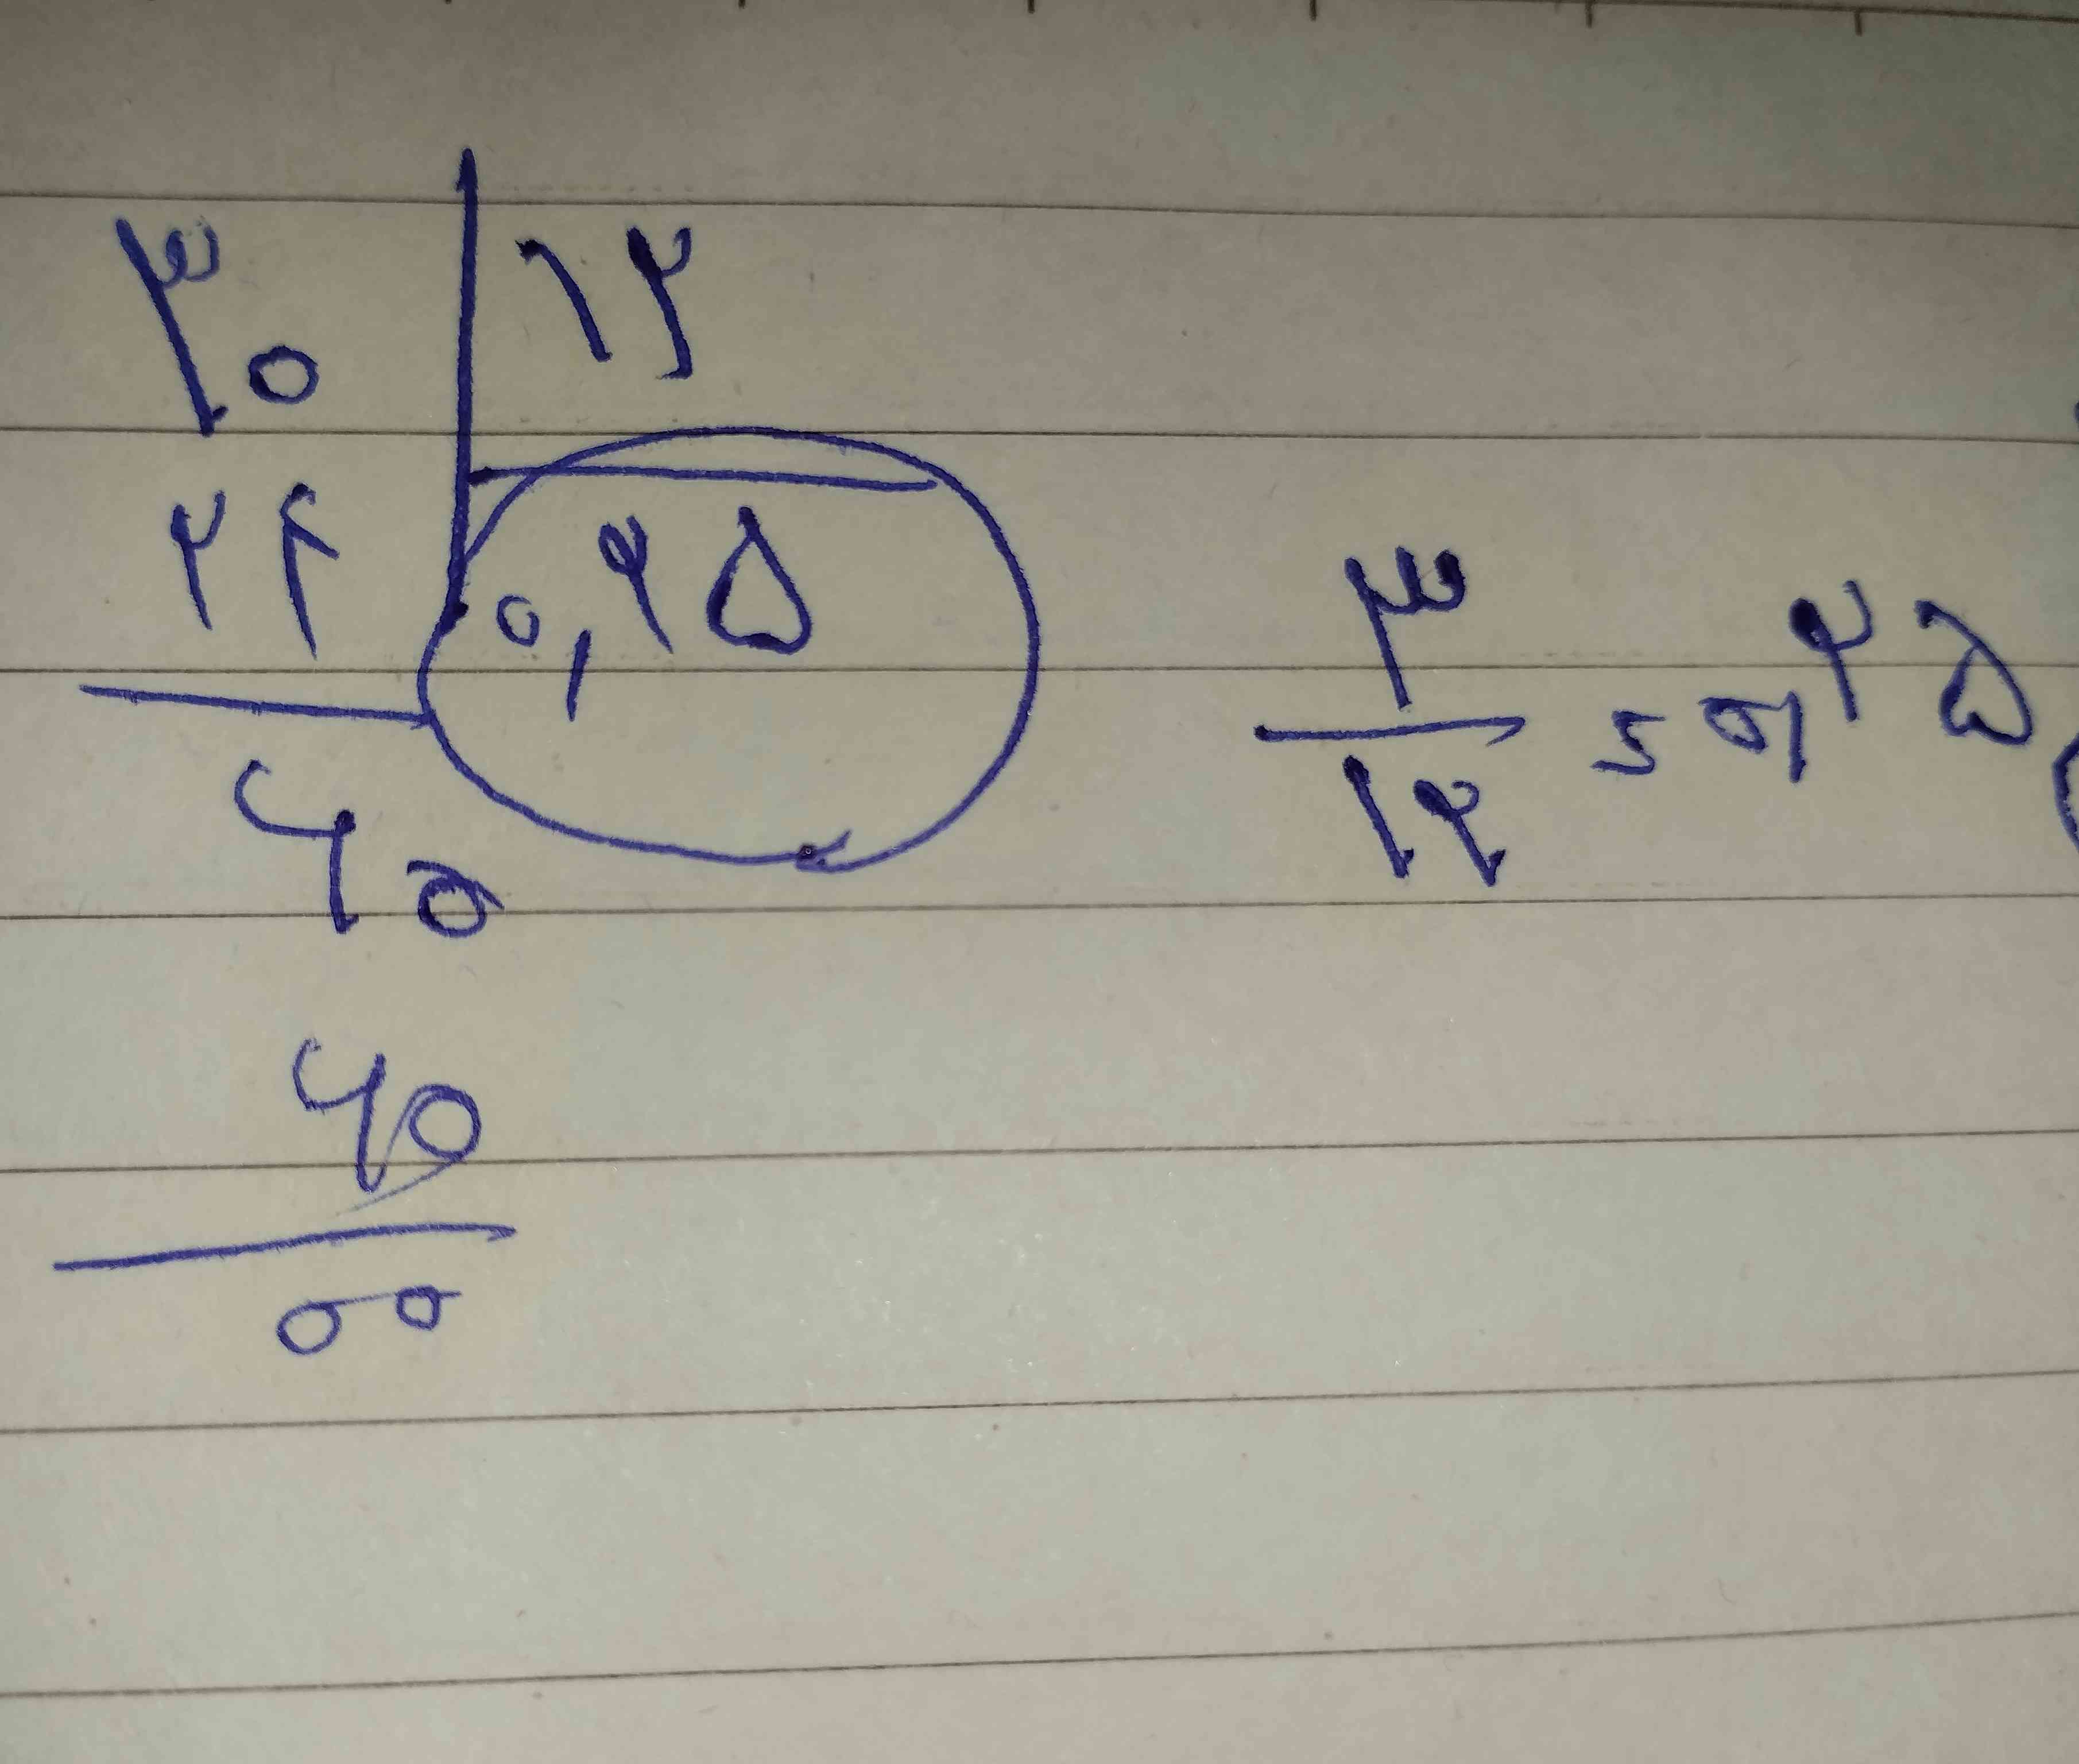 ۳۰ ۱۲
۲۴ ۰,۲۵
۶۰
۶۰
۰۰
۳
۱۲ = ۰,۲۵